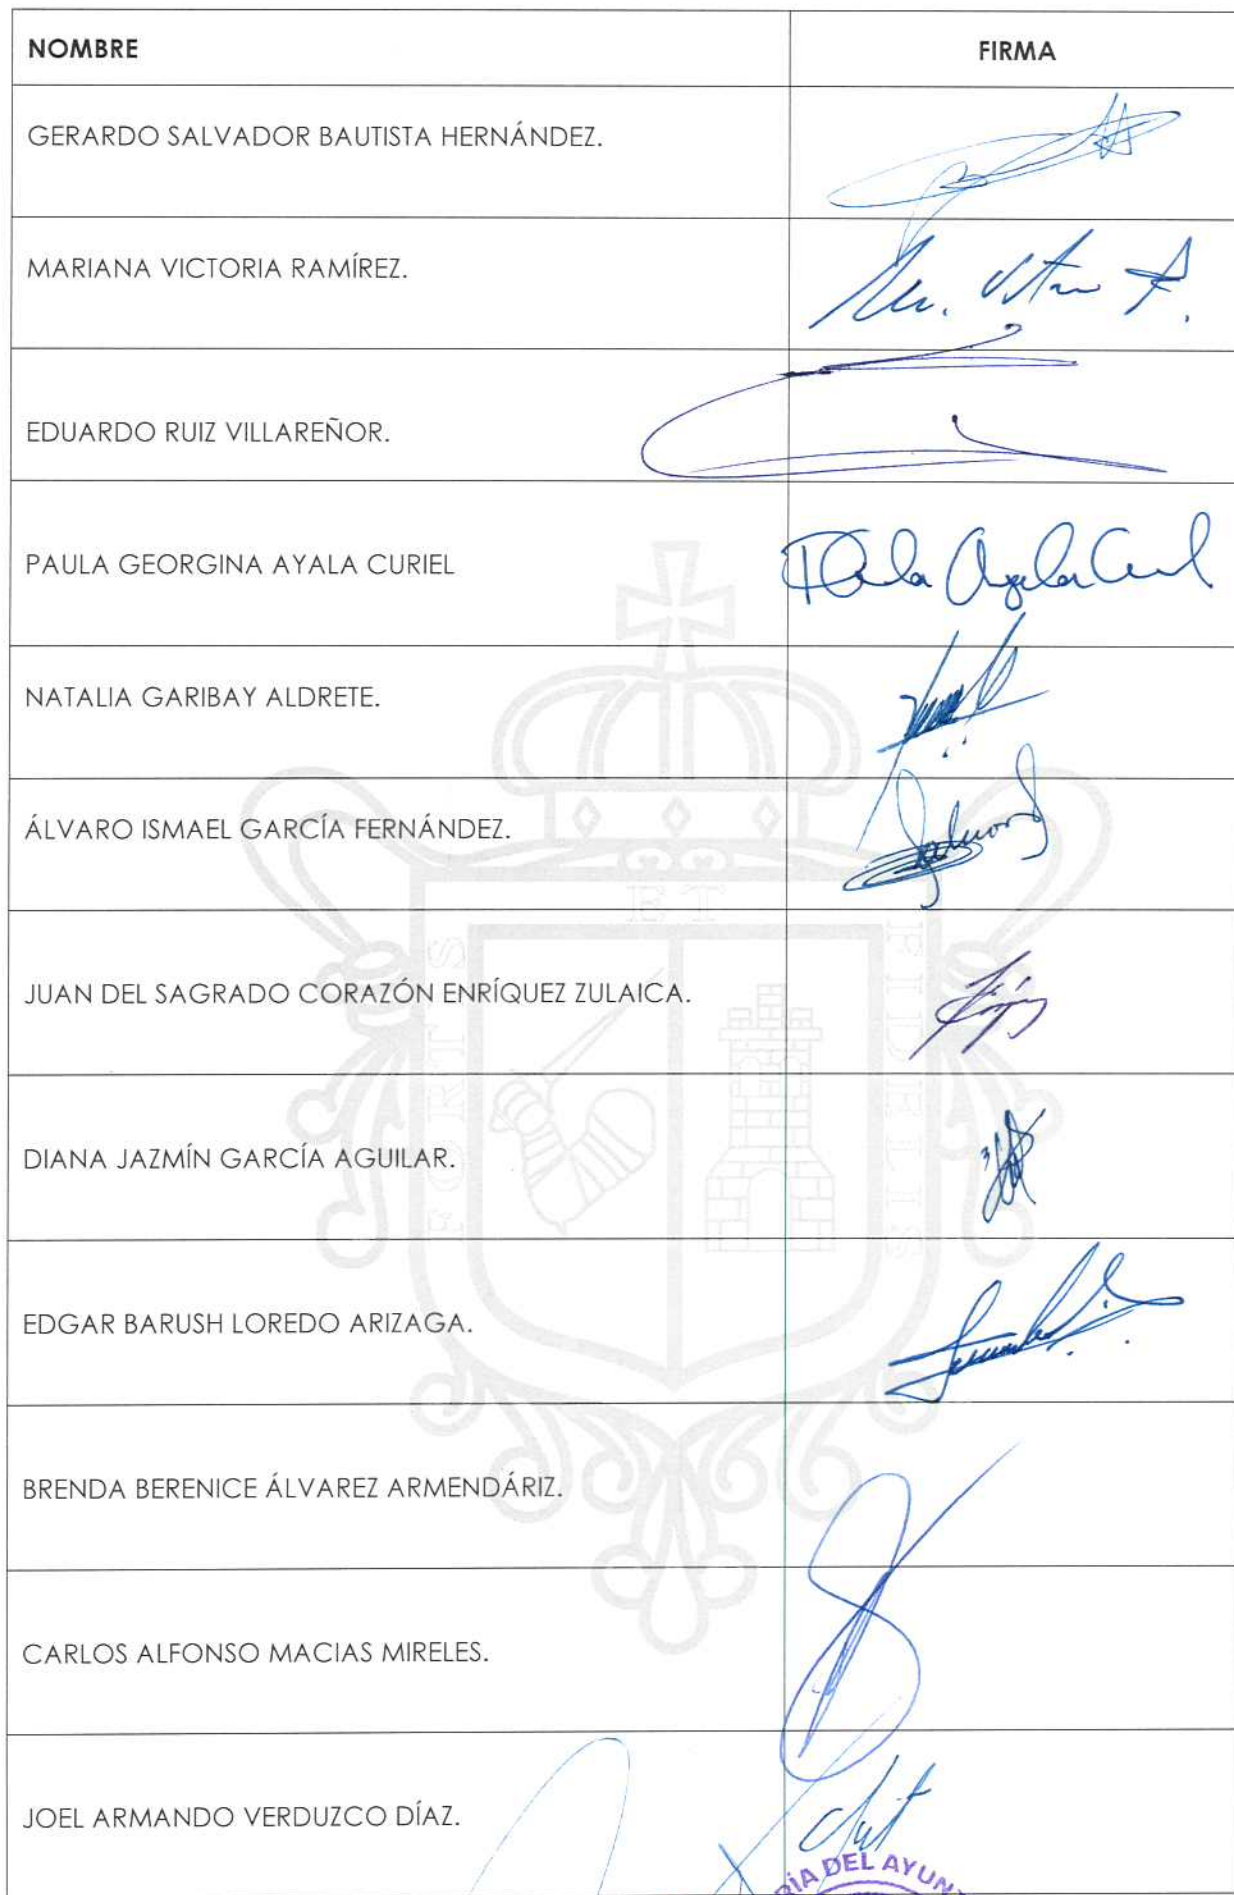 NOMBRE FIRMA
GERARDO SALVADOR BAUTISTA HERNÁNDEZ.
MARIANA VICTORIA RAMÍREZ.
EDUARDO RUIZ VILLAREÑOR.
PAULA GEORGINA AYALA CURIEL
Paula Ayala Curiel
NATALIA GARIBAY ALDRETE.
ÁLVARO ISMAEL GARCÍA FERNÁNDEZ.
ET
JUAN DEL SAGRADO CORAZÓN ENRÍQUEZ ZULAICA.
FORTIS
FIDELIS
DIANA JAZMÍN GARCÍA AGUILAR.
EDGAR BARUSH LOREDO ARIZAGA.
BRENDA BERENICE ÁLVAREZ ARMENDÁRIZ.
CARLOS ALFONSO MACIAS MIRELES.
JOEL ARMANDO VERDUZCO DÍAZ.
DEL